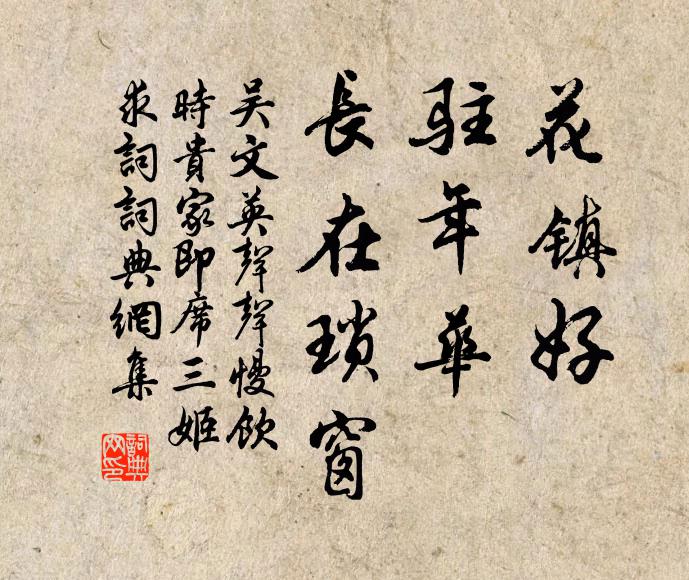 花鎮好
駐年華
長在瑣窗
吴文英聲聲慢飲
時貴家即席三姬
求詞詞典網集
詞典
网印